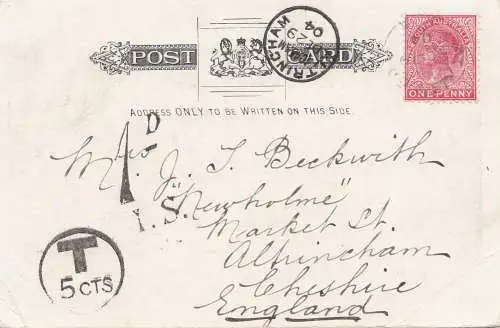 POST CARD
ADDRESS ONLY TO BE WRITTEN ON THIS SIDE.
ALTRINCHAM
04
SOUTH AUSTRALIA
ONE PENNY
1D
I.S.
Mrs J. T. Beckwith
"Newholme"
Market St.
Altrincham
Cheshire
England
T
5 CTS